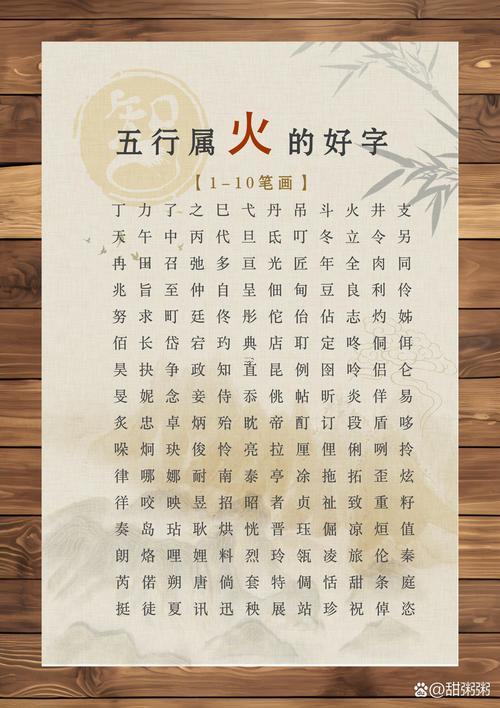 五行属火的好字
【1-10笔画】
丁 力 了 之 巳 弋 丹 吊 斗 火 井 支
天 午 中 丙 代 旦 氐 叮 冬 立 令 另
冉 田 召 弛 多 亘 光 匠 年 全 肉 同
兆 旨 至 仲 自 呈 佃 甸 豆 良 利 伶
努 求 町 廷 佟 玓 佗 佁 佔 志 灼 姊
佰 长 岱 宕 彤 典 店 耵 定 咚 侗 佴
昊 抉 争 政 知 直 昆 例 图 昤 侣 仑
旻 妮 念 妾 侍 忝 佻 帖 昕 炎 佯 易
炙 忠 卓 炳 殆 眈 帝 酊 订 段 盾 哆
哚 炯 玦 俊 怜 亮 拉 厘 俚 俐 咧 拎
律 哪 娜 耐 南 泰 亭 涂 拖 拓 歪 炫
徉 咬 映 昱 招 昭 者 贞 祉 致 重 籽
奏 岛 玷 耿 烘 恍 晋 珏 倔 凉 烜 值
朗 烙 哩 娌 料 烈 玲 瓴 凌 旅 伦 秦
芮 偌 朔 唐 倘 套 特 倜 恬 甜 条 庭
挺 徒 夏 讯 迅 秧 展 站 珍 祝 倬 恣
智
@甜粥粥